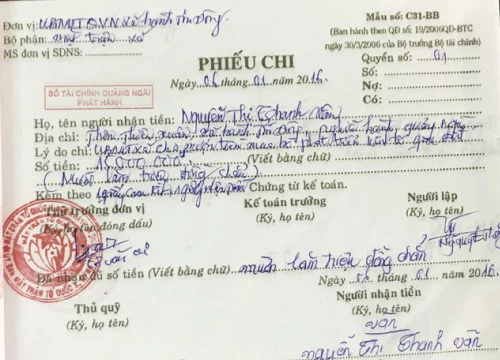 Đơn vị: UBMTTQVN xã hành Tín Đông
Bộ phận: mặt trận xã
MS đơn vị SDNS:
Mẫu số: C31-BB
(Ban hành theo QĐ số: 19/2006QĐ-BTC
ngày 30/3/2006 của Bộ trưởng Bộ tài chính)
PHIẾU CHI
Ngày 06 tháng 01 năm 2016
Quyển số: 01
Số:
Nợ:
Có:
SỞ TÀI CHÍNH QUẢNG NGÃI
PHÁT HÀNH
Họ, tên người nhận tiền: Nguyễn Thị Thanh Vân
Địa chỉ: Thôn Thiên xuân, xã hành Tín Đông, nghĩa hành, quảng ngãi
Lý do chi: UBMT xã chi tiền mua bò phát triển kinh tế gia đình
Số tiền: 15.000.000 (Viết bằng chữ)
(Mười lăm triệu đồng chẵn)
Kèm theo Chứng từ kế toán.
Thủ trưởng đơn vị
(Ký, họ tên, đóng dấu)
Kế toán trưởng
(Ký, họ tên)
Người lập
(Ký, họ tên)
Đã nhận đủ số tiền (Viết bằng chữ) mười lăm triệu đồng chẵn
Ngày tháng 01 năm 2016
Thủ quỹ
(Ký, họ tên)
Người nhận tiền
(Ký, họ tên)
vân
nguyễn Thị Thanh vân